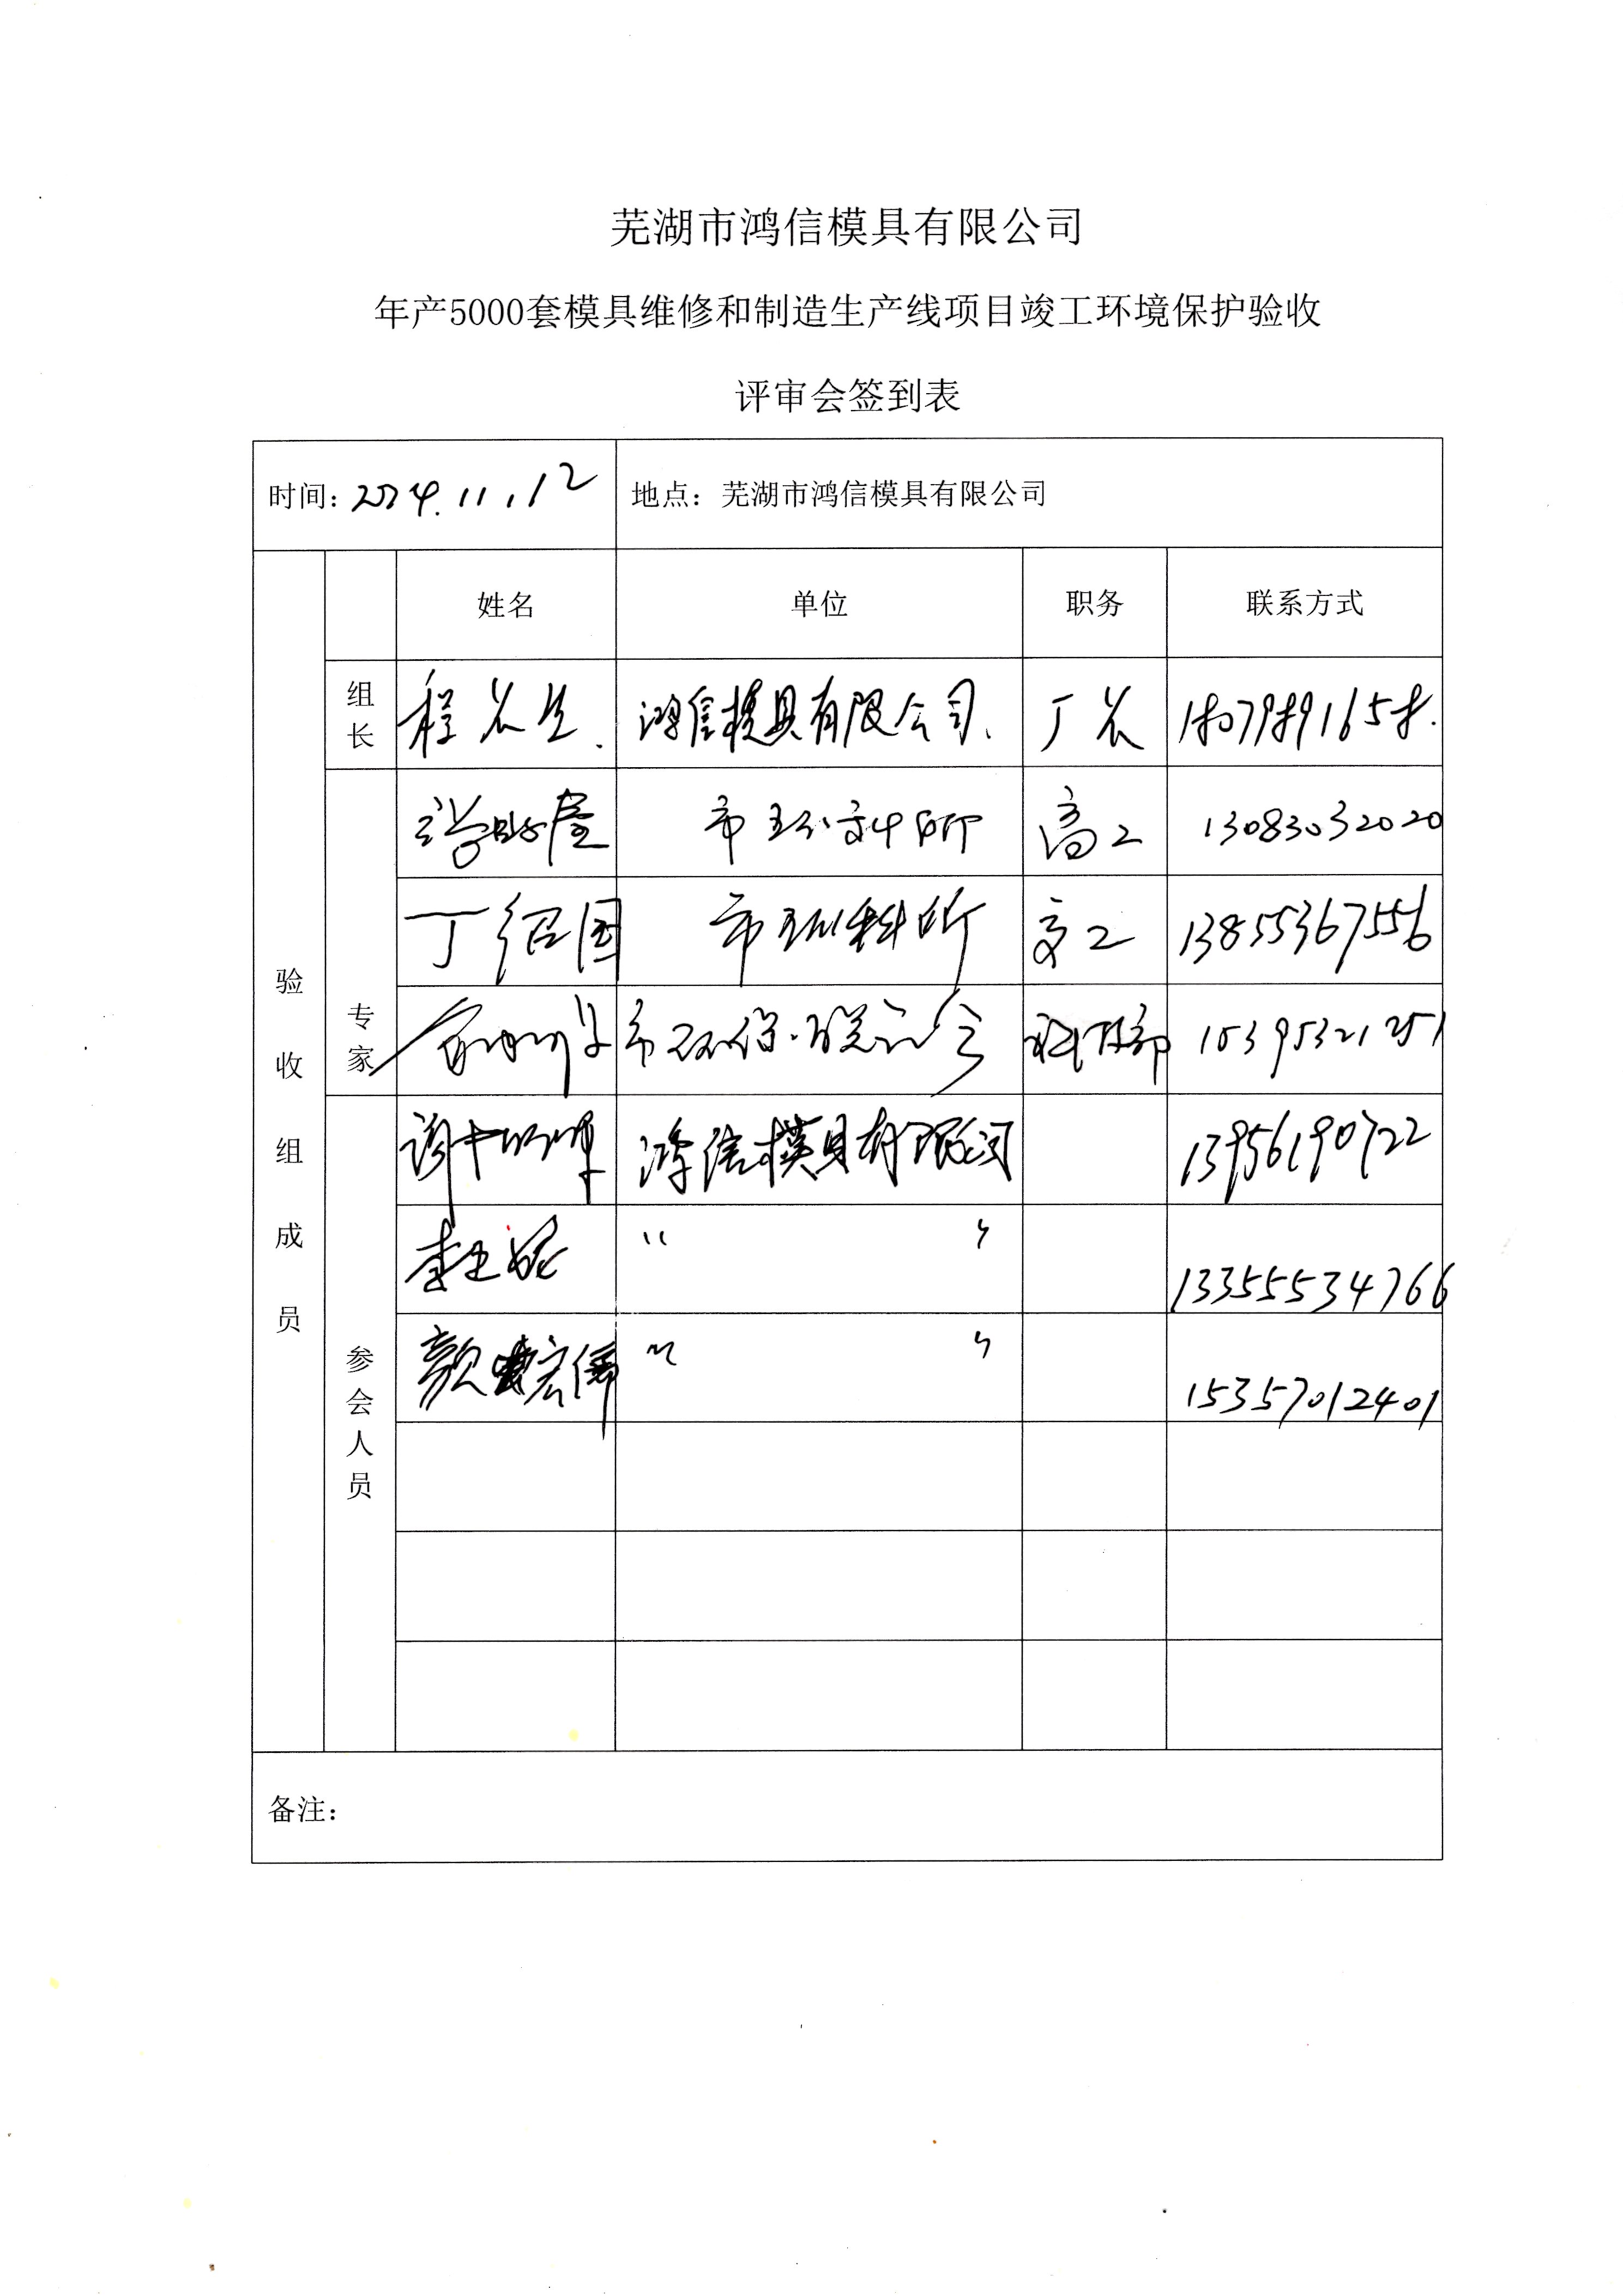 芜湖市鸿信模具有限公司
年产5000套模具维修和制造生产线项目竣工环境保护验收
评审会签到表
时间：2024.11.12 地点：芜湖市鸿信模具有限公司
验收组成员
姓名 单位 职务 联系方式
组长 程 鸿信模具有限公司、 厂长 18079891658.
专家
市环科所 高工 13083032020
丁绍国 市环科所 高工 13855367556
市环保联合会 科技部 15395321251
参会人员
谢 鸿信模具有限公司 13956190722
李 〃 〃 13355534766
颜宏伟 〃 〃 15357012401
备注：